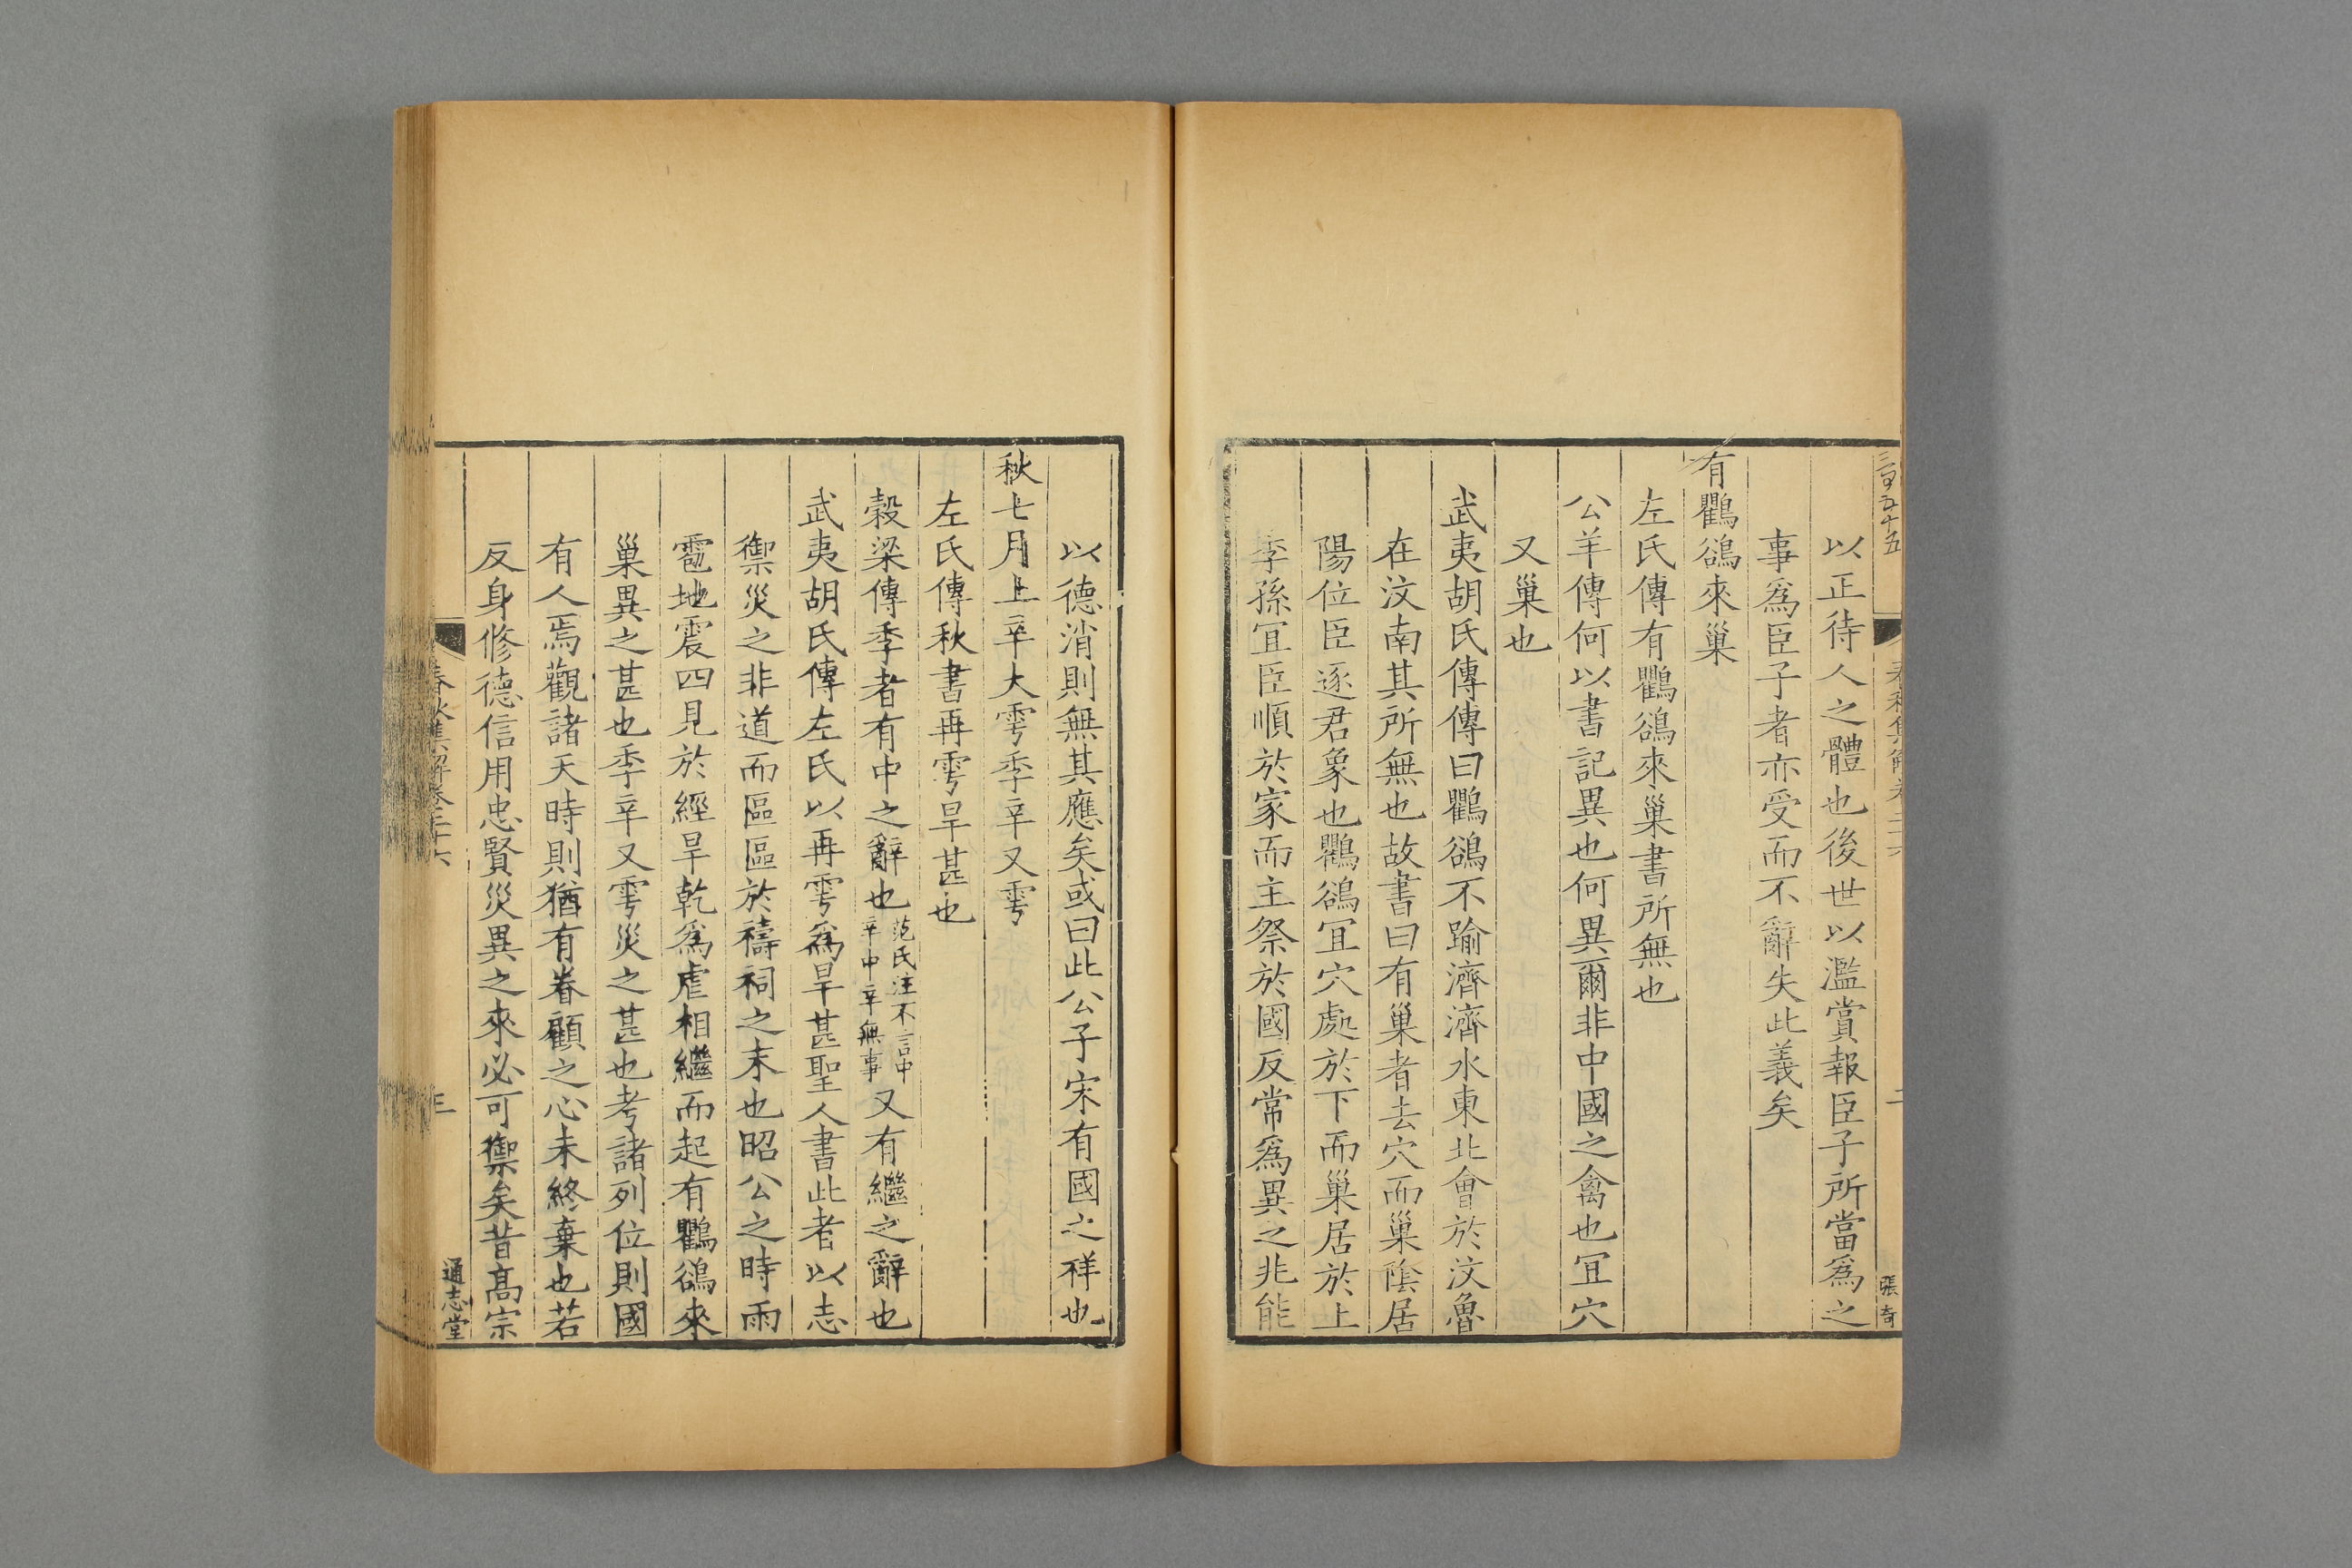 以正待人之體也後世以濫賞報臣子所當爲之
事爲臣子者亦受而不辭失此義矣
有鸜鵒來巢
左氏傳有鸜鵒來巢書所無也
公羊傳何以書記異也何異爾非中國之禽也冝穴
又巢也
武夷胡氏傳傳曰鸜鵒不踰濟濟水東北會於汶魯
在汶南其所無也故書曰有巢者去穴而巢陰居
陽位臣逐君象也鸜鵒冝穴處於下而巢居於上
季孫冝臣順於家而主祭於國反常爲異之兆能
張奇
以德消則無其應矣或曰此公子宋有國之祥也
秋七月上辛大雩季辛又雩
左氏傳秋書再雩旱甚也
穀梁傳季者有中之辭也范氏注不言中辛中辛無事又有繼之辭也
武夷胡氏傳左氏以再雩爲旱甚聖人書此者以志
禦災之非道而區區於禱祠之末也昭公之時雨
雹地震四見於經旱乾爲虐相繼而起有鸜鵒來
巢異之甚也季辛又雩災之甚也考諸列位則國
有人焉觀諸天時則猶有眷顧之心未終棄也若
反身修德信用忠賢災異之來必可禦矣昔高宗
春秋集解卷二十六
三
通志堂